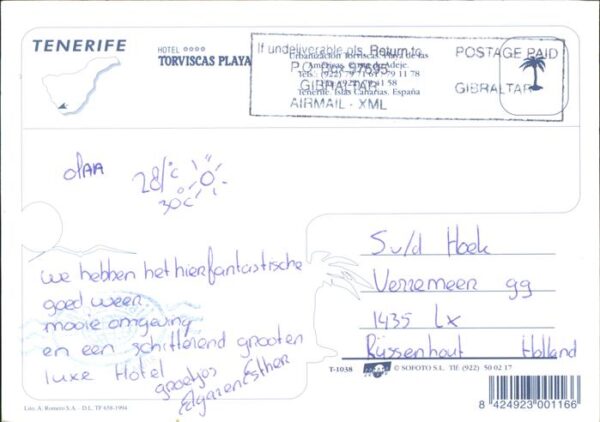 TENERIFE
HOTEL
TORVISCAS PLAYA
If undeliverable pls. Return to
P.O. Box
GIBRALTAR
AIRMAIL - XML
POSTAGE PAID
GIBRALTAR
Urbanización Torviscas Playa de las
Américas. Adeje.
Tels.: (922) 79 11 78
Tenerife. Islas Canarias. España
olAA
28/°c
30°c
we hebben het hier fantastische
goed weer.
mooie omgeving
en een schitterend grooten
luxe Hotel
groetjes
Elgar en Esther
S v/d Hoek
Verremeer 99
1435 Lx
Rijssenhout Holland
T-1038
© SOFOTO S.L. Tlf: (922) 50 02 17
Lito. A. Romero S.A. - D.L. TF 658-1994
8 424923 001166